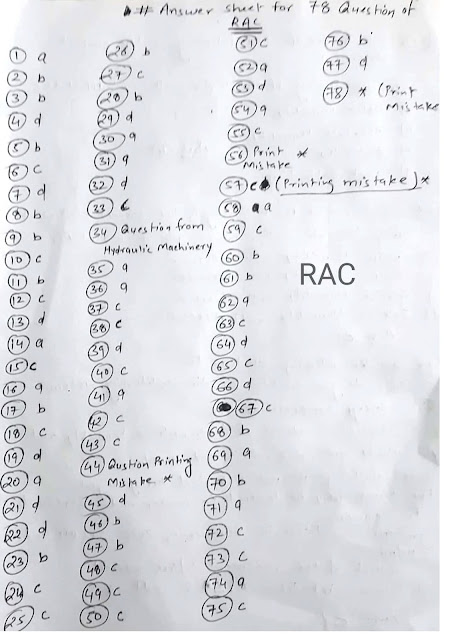 # Answer sheet for 78 Question of
RAC
1 a
2 b
3 b
4 d
5 b
6 c
7 d
8 b
9 b
10 c
11 b
12 c
13 d
14 a
15 c
16 a
17 b
18 c
19 d
20 a
21 d
22 d
23 b
24 c
25 c
26 b
27 c
28 b
29 d
30 a
31 a
32 d
33 c
34 Question from
Hydraulic Machinery
35 a
36 a
37 c
38 c
39 d
40 c
41 a
42 c
43 c
44 Qustion Printing
Mistake *
45 d
46 b
47 b
48 c
49 c
50 c
51 c
52 a
53 d
54 a
55 c
56 Print *
Mistake
57 c (Printing mistake) *
58 a
59 c
60 b
61 b
62 a
63 c
64 d
65 c
66 d
67 c
68 b
69 a
70 b
71 a
72 c
73 c
74 a
75 c
76 b
77 d
78 * (Print
Mistake
RAC